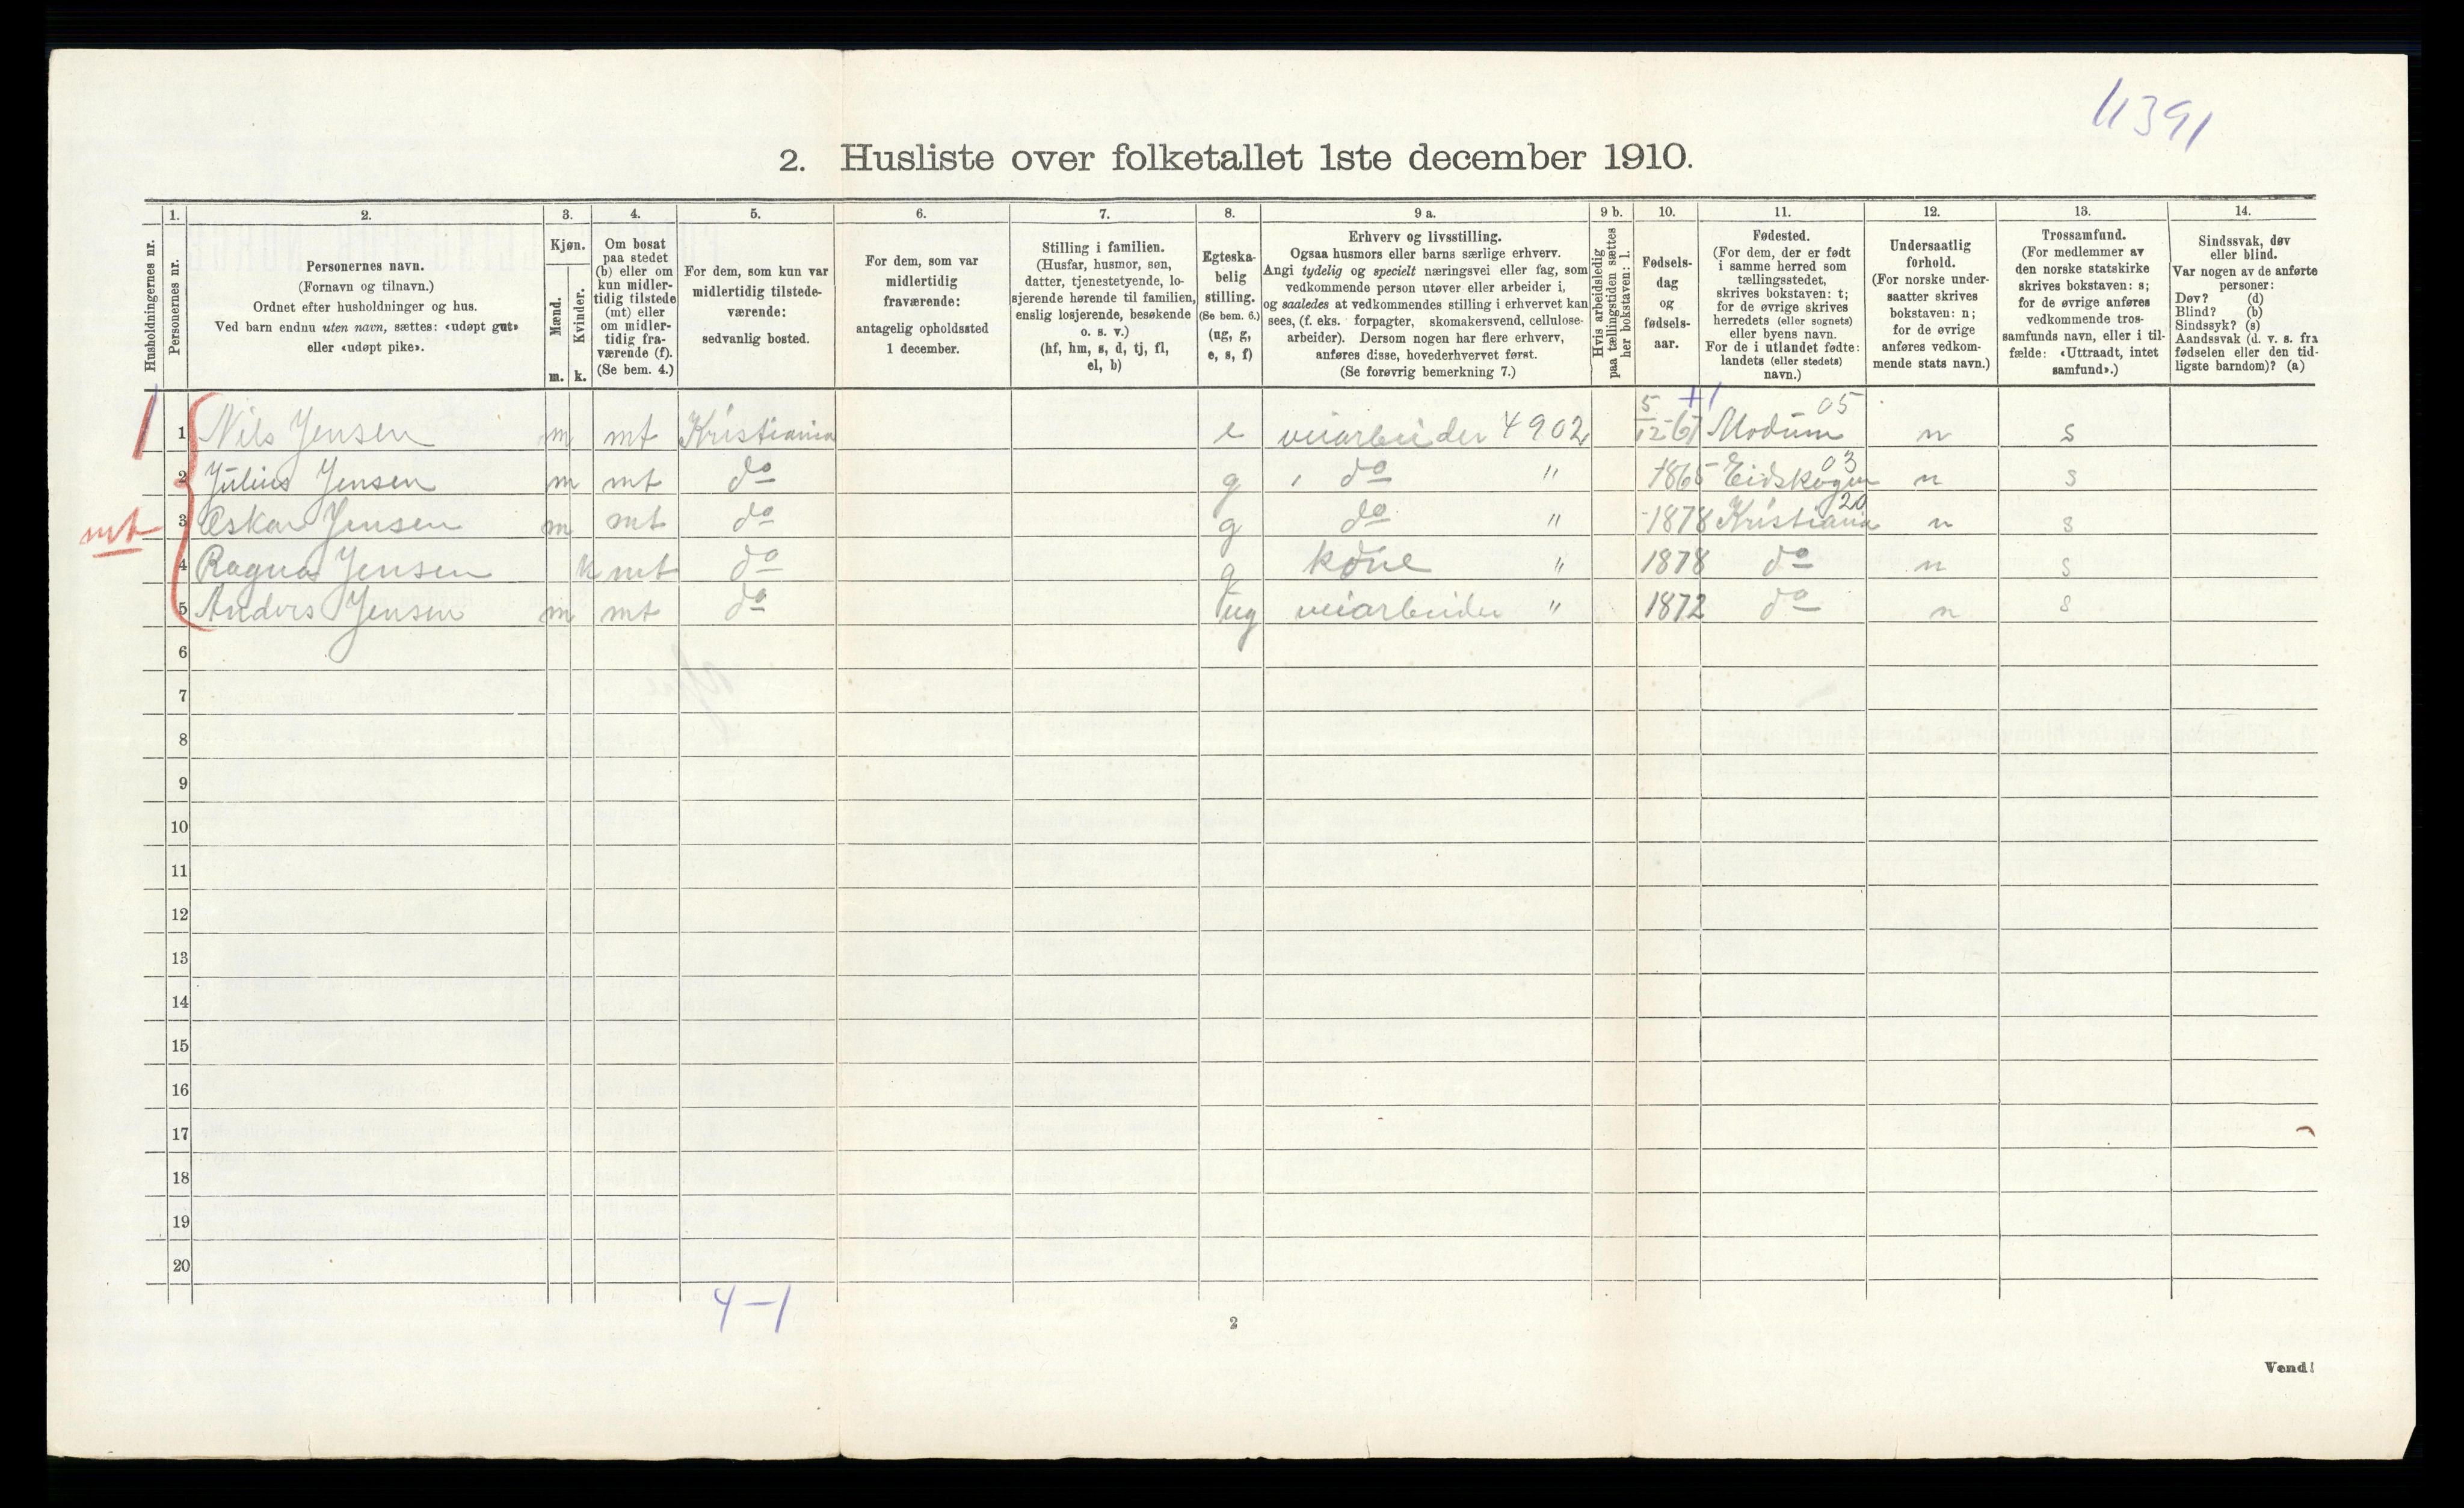 11391
2. Husliste over folketallet 1ste december 1910.
1. 2. 3. 4. 5. 6. 7. 8. 9 a. 9 b. 10. 11. 12. 13. 14.
Husholdningernes nr.
Personernes nr.
Personernes navn.
(Fornavn og tilnavn.)
Ordnet efter husholdninger og hus.
Ved barn endnu uten navn, sættes: «udøpt gut»
eller «udøpt pike».
Kjøn.
Mænd.
Kvinder.
m. k.
Om bosat
paa stedet
(b) eller om
kun midler-
tidig tilstede
(mt) eller
om midler-
tidig fra-
værende (f).
(Se bem. 4.)
For dem, som kun var
midlertidig tilstede-
værende:
sedvanlig bosted.
For dem, som var
midlertidig
fraværende:
antagelig opholdssted
1 december.
Stilling i familien.
(Husfar, husmor, søn,
datter, tjenestetyende, lo-
sjerende hørende til familien,
enslig losjerende, besøkende
o. s. v.)
(hf, hm, s, d, tj, fl,
el, b)
Egteska-
belig
stilling.
(Se bem. 6.)
(ug, g,
e, s, f)
Erhverv og livsstilling.
Ogsaa husmors eller barns særlige erhverv.
Angi tydelig og specielt næringsvei eller fag, som
vedkommende person utøver eller arbeider i,
og saaledes at vedkommendes stilling i erhvervet kan
sees, (f. eks. forpagter, skomakersvend, cellulose-
arbeider). Dersom nogen har flere erhverv,
anføres disse, hovederhvervet først.
(Se forøvrig bemerkning 7.)
Hvis arbeidsledig
paa tællingstiden sættes
her bokstaven: l.
Fødsels-
dag
og
fødsels-
aar.
Fødested.
(For dem, der er født
i samme herred som
tællingsstedet,
skrives bokstaven: t;
for de øvrige skrives
herredets (eller sognets)
eller byens navn.
For de i utlandet fødte:
landets (eller stedets)
navn.)
Undersaatlig
forhold.
(For norske under-
saatter skrives
bokstaven: n;
for de øvrige
anføres vedkom-
mende stats navn.)
Trossamfund.
(For medlemmer av
den norske statskirke
skrives bokstaven: s;
for de øvrige anføres
vedkommende tros-
samfunds navn, eller i til-
fælde: «Uttraadt, intet
samfund».)
Sindssvak, døv
eller blind.
Var nogen av de anførte
personer:
Døv? (d)
Blind? (b)
Sindssyk? (s)
Aandssvak (d. v. s. fra
fødselen eller den tid-
ligste barndom)? (a)
+1 05
1 1 Nils Jensen m mt Kristiania e veiarbeider 4902 5/12-67 Modum n s
03
2 Julius Jensen m mt do g do " 1865 Eidskogen n s
20
mt 3 Oskar Jensen m mt do g do " 1878 Kristiania n s
4 Ragna Jensen k mt do g kone " 1878 do n s
5 Anders Jensen m mt do ug veiarbeider " 1872 do n s
6
7
8
9
10
11
12
13
14
15
16
17
18
19
20
4-1
2
Vend!